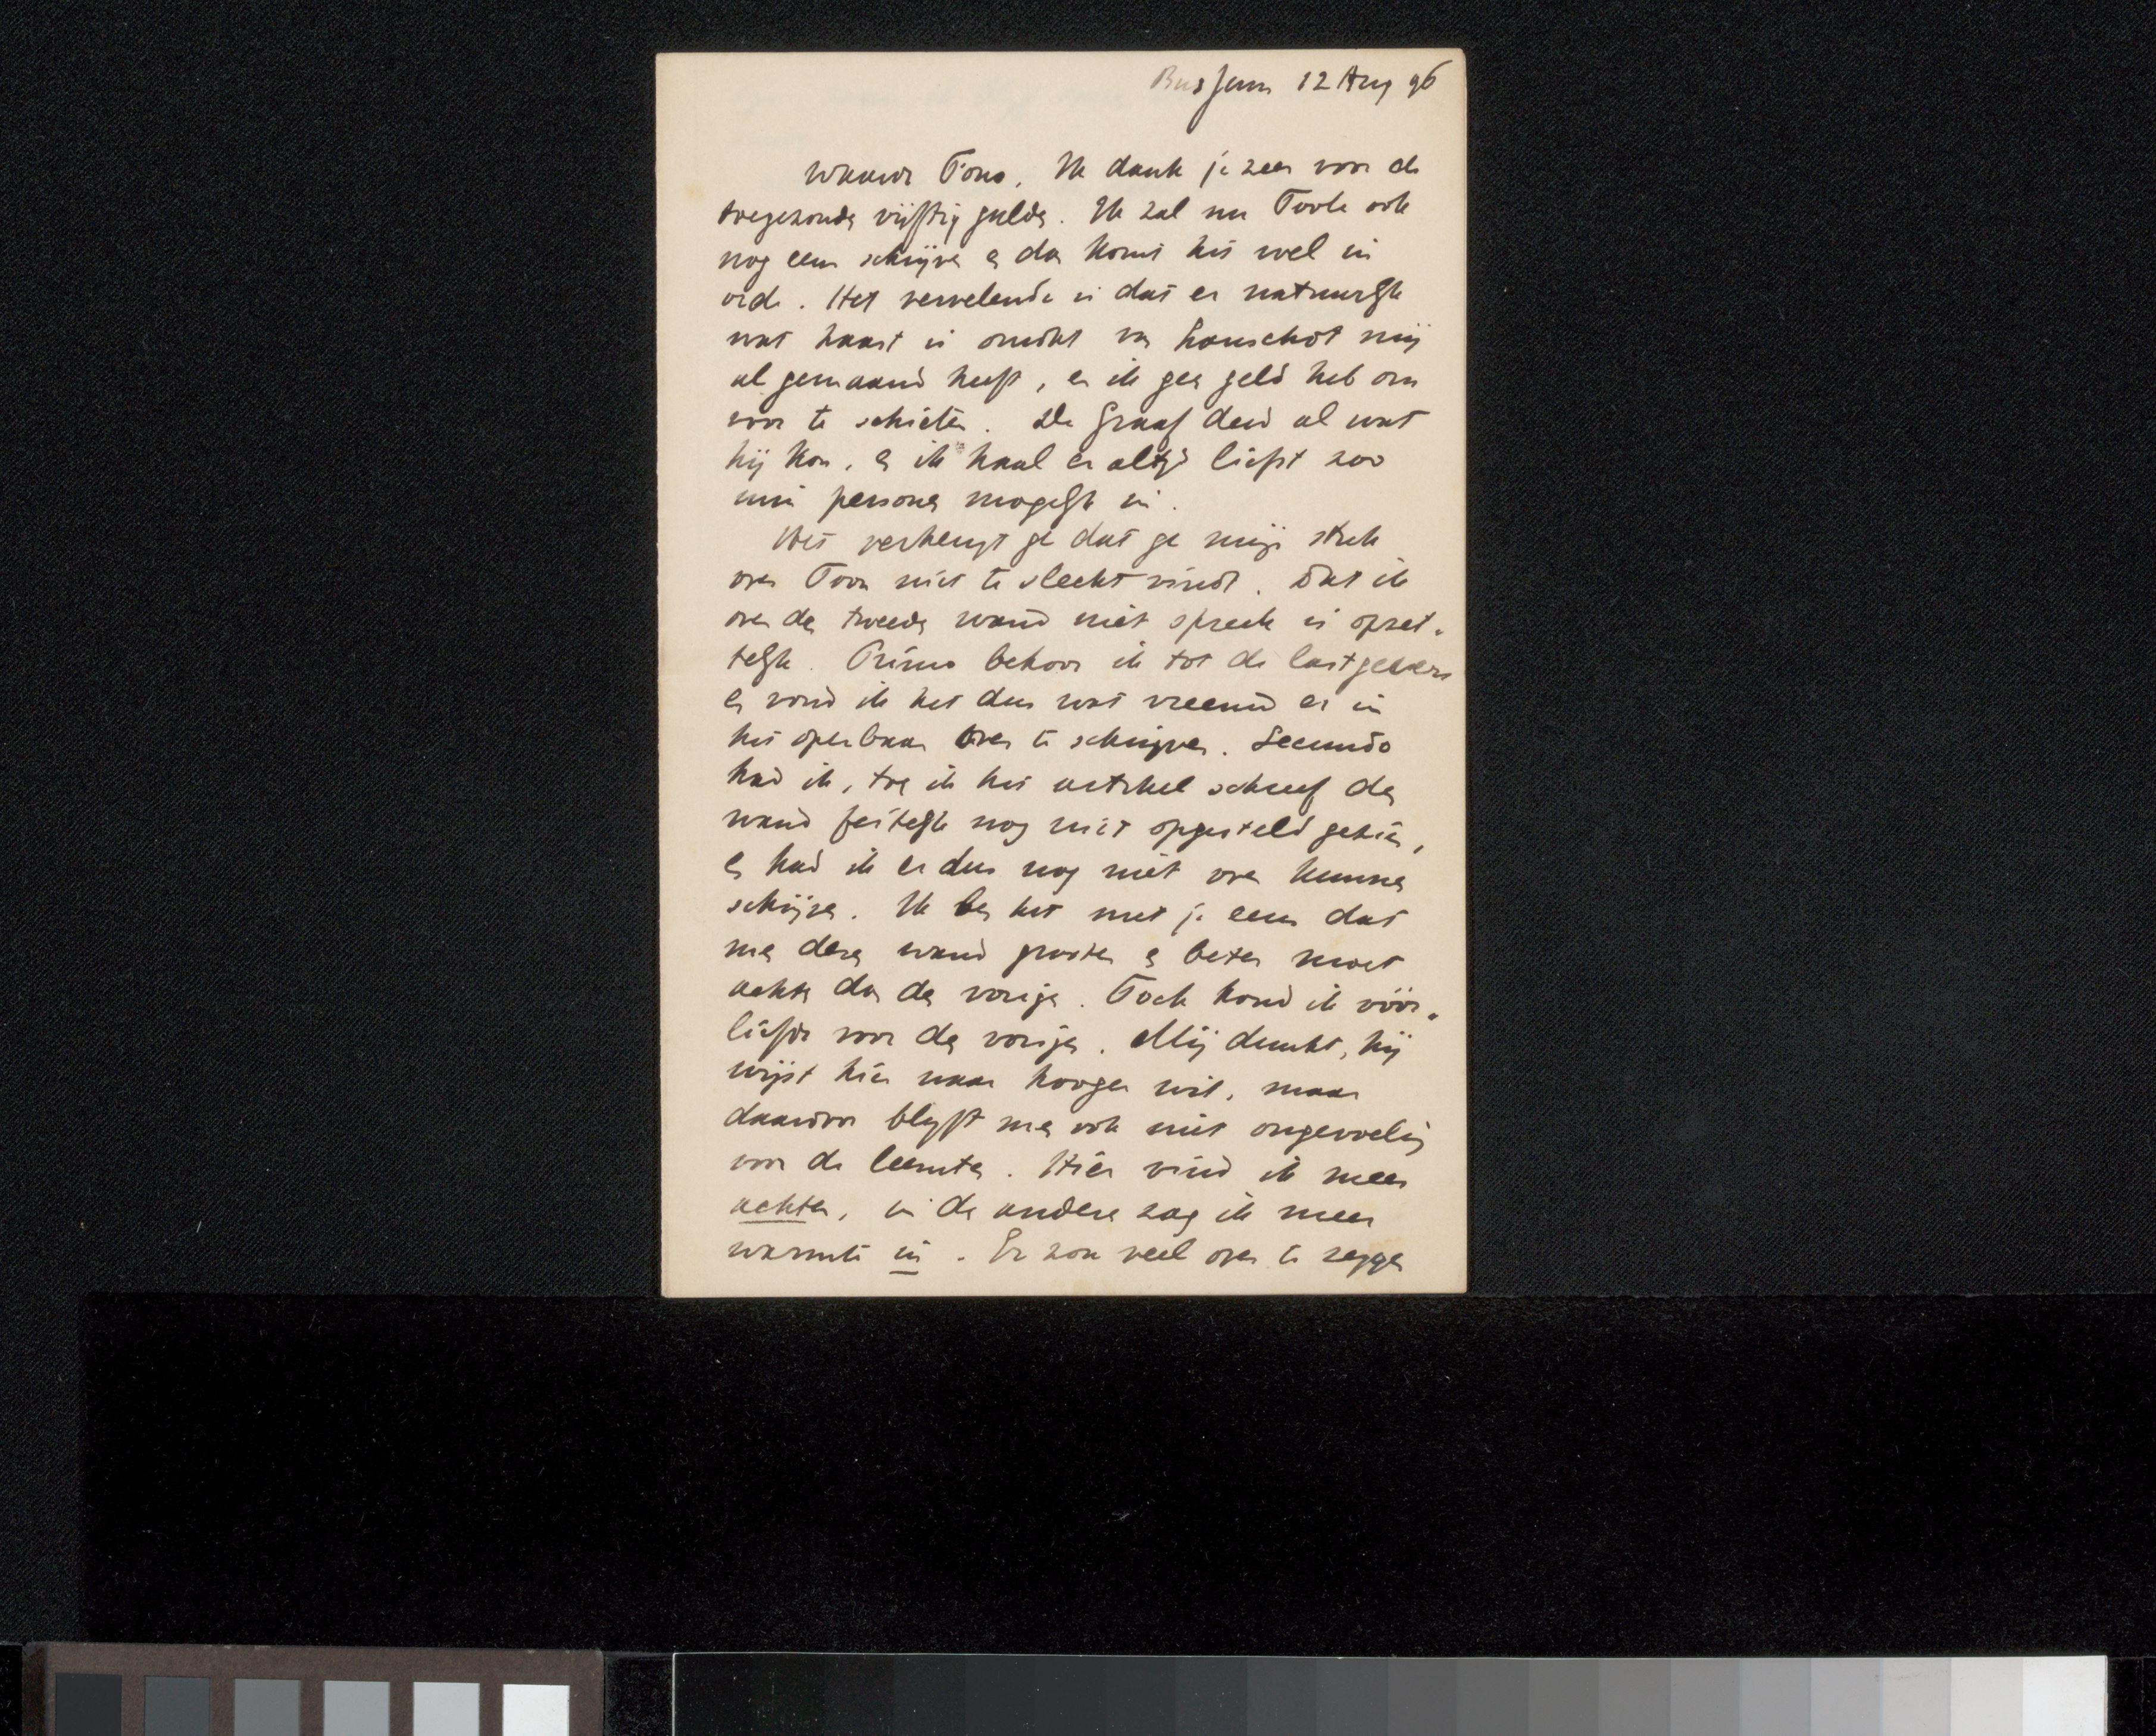 Bussum 12 Aug 96
Waarde Tono. Ik dank je zeer voor de
toegezonden vijftig gulden. Ik zal nu Toole ook
nog eens schrijven en dan komt het wel in
orde. Het vervelende is dat er natuurlijk
wat haast is omdat van Lanschot mij
al gemaand heeft, en ik geen geld heb om
voor te schieten. De Graaf deed al wat
hij kon, en ik haal er altijd liefst zoo
min personen mogelijk in.
Het verheugt me dat ge mijn stuk
over Toon niet te slecht vindt. Dat ik
over den tweeden wand niet spreek is opzet-
telijk. Primo behoor ik tot de lastgevers
en vond ik het dus wat vreemd er in
het openbaar over te schrijven. Secundo
had ik, toen ik het artikel schreef den
wand feitelijk nog niet opgesteld gezien,
en had ik er dus nog niet over kunnen
schrijven. Ik ben het met je eens dat
men dezen wand grooter en beter moet
achten dan den vorigen. Toch houd ik vóór-
liefde voor den vorigen. Mij dunkt, hij
wijst hier naar hooger uit, maar
daarvoor blijft men ook niet ongevoelig
voor de leemten. Hier vind ik meer
achter, in de andere zag ik meer
warmte in. Er zou veel over te zeggen